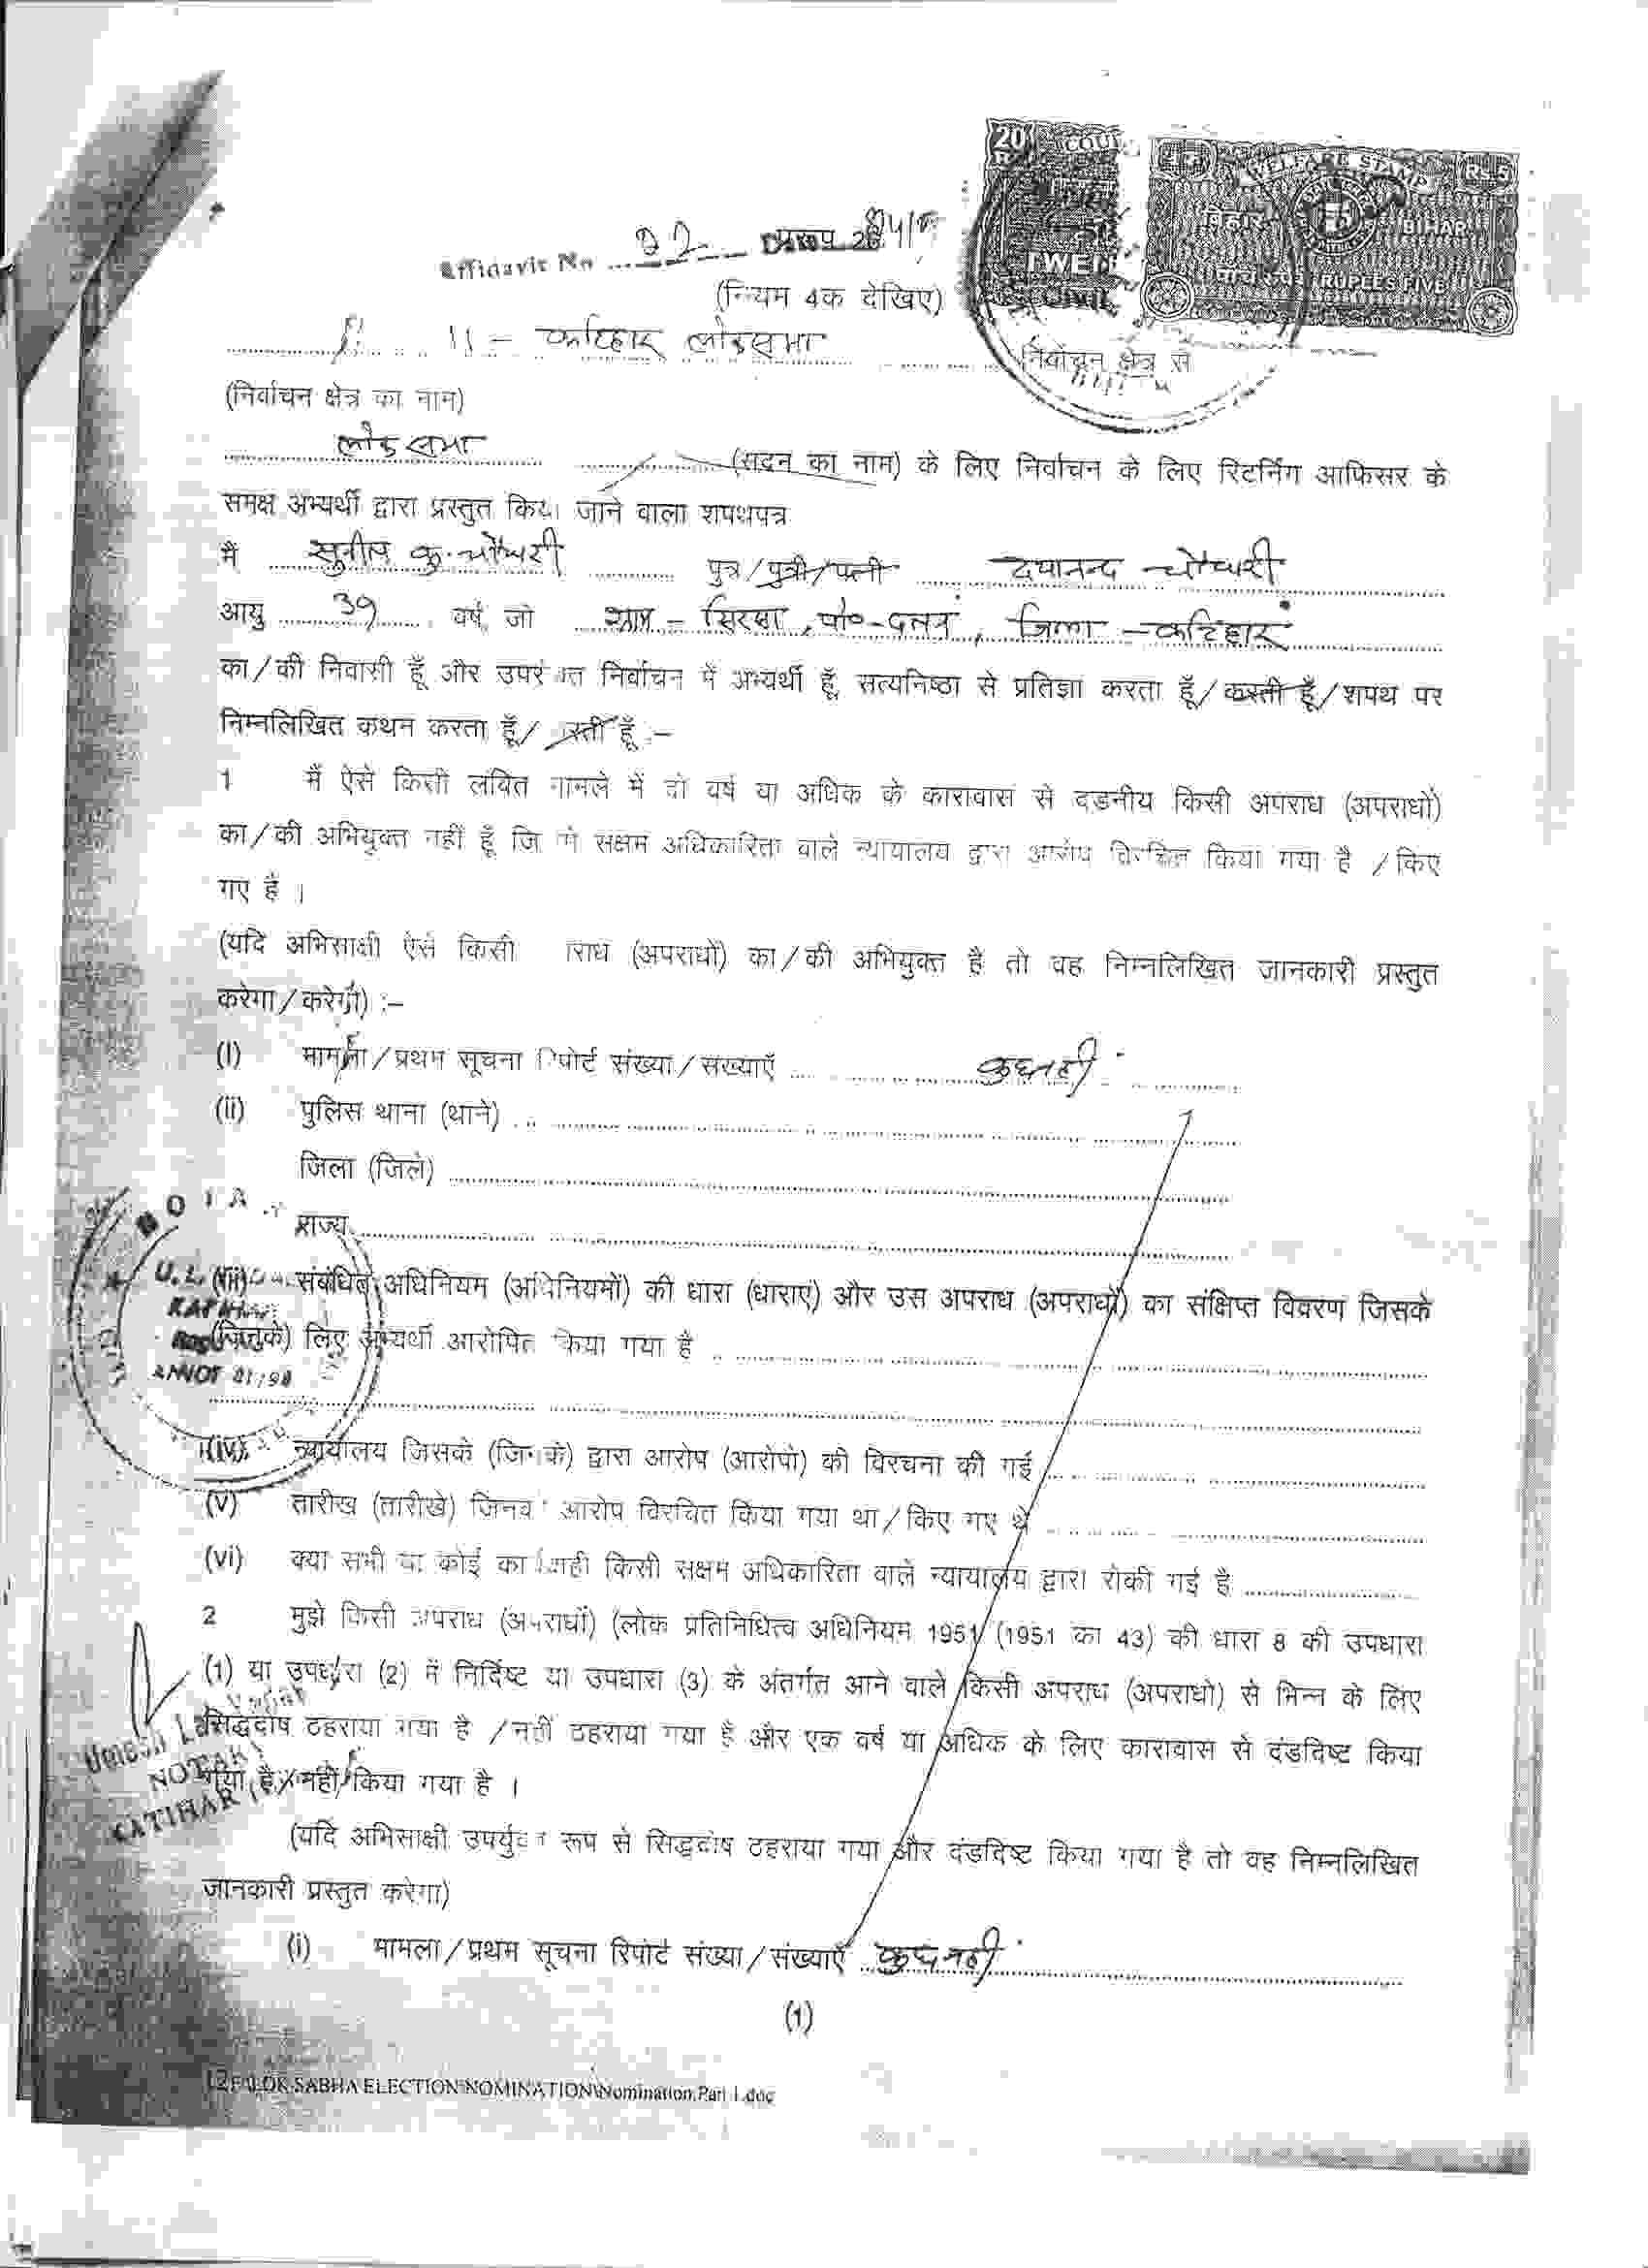 20 COU
WELFARE STAMP Rs.5
बिहार BIHAR
TWE पांच रुपये RUPEES FIVE
Affidavit No 22
(नियम 4क देखिए)
11 - कटिहार लोकसभा निर्वाचन क्षेत्र से
(निर्वाचन क्षेत्र का नाम)
लोकसभा (सदन का नाम) के लिए निर्वाचन के लिए रिटर्निंग आफिसर के
समक्ष अभ्यर्थी द्वारा प्रस्तुत किया जाने वाला शपथपत्र
मैं सुनील कु. चौधरी पुत्र/पुत्री/पत्नी दयानन्द चौधरी
आयु 39 वर्ष, जो ग्राम - सिरसा, पो०-दलन, जिला - कटिहार
का/की निवासी हूँ और उपरोक्त निर्वाचन में अभ्यर्थी हूँ, सत्यनिष्ठा से प्रतिज्ञा करता हूँ/करती हूँ/शपथ पर
निम्नलिखित कथन करता हूँ/ रती हूँ :-
1 मैं ऐसे किसी लंबित मामले में दो वर्ष या अधिक के कारावास से दंडनीय किसी अपराध (अपराधों)
का/की अभियुक्त नहीं हूँ जि में सक्षम अधिकारिता वाले न्यायालय द्वारा आरोप विरचित किया गया है /किए
गए है ।
(यदि अभिसाक्षी ऐसे किसी राध (अपराधों) का/की अभियुक्त है तो वह निम्नलिखित जानकारी प्रस्तुत
करेगा/करेगी) :-
(i) मामला/प्रथम सूचना रिपोर्ट संख्या/संख्याएँ कुछ नहीं
(ii) पुलिस थाना (थाने)
जिला (जिले)
राज्य
(iii) संबंधित अधिनियम (अधिनियमों) की धारा (धाराएं) और उस अपराध (अपराधों) का संक्षिप्त विवरण जिसके
(जिनके) लिए अभ्यर्थी आरोपित किया गया है
(iv) न्यायालय जिसके (जिनके) द्वारा आरोप (आरोपो) की विरचना की गई
(v) तारीख (तारीखे) जिनको आरोप विरचित किया गया था/किए गए थे
(vi) क्या सभी या कोई कार्यवाही किसी सक्षम अधिकारिता वाले न्यायालय द्वारा रोकी गई है
2 मुझे किसी अपराध (अपराधों) (लोक प्रतिनिधित्व अधिनियम 1951 (1951 का 43) की धारा 8 की उपधारा
(1) या उपधारा (2) में निर्दिष्ट या उपधारा (3) के अंतर्गत आने वाले किसी अपराध (अपराधो) से भिन्न के लिए
सिद्धदोष ठहराया गया है /नहीं ठहराया गया है और एक वर्ष या अधिक के लिए कारावास से दंडदिष्ट किया
गया है/नहीं किया गया है ।
(यदि अभिसाक्षी उपर्युक्त रूप से सिद्धदोष ठहराया गया और दंडदिष्ट किया गया है तो वह निम्नलिखित
जानकारी प्रस्तुत करेगा)
(i) मामला/प्रथम सूचना रिपोर्ट संख्या/संख्याएँ कुछ नहीं
NOTARY
KATIHAR
(1)
SABHA ELECTION\NOMINATION\Nomination.Part I.doc